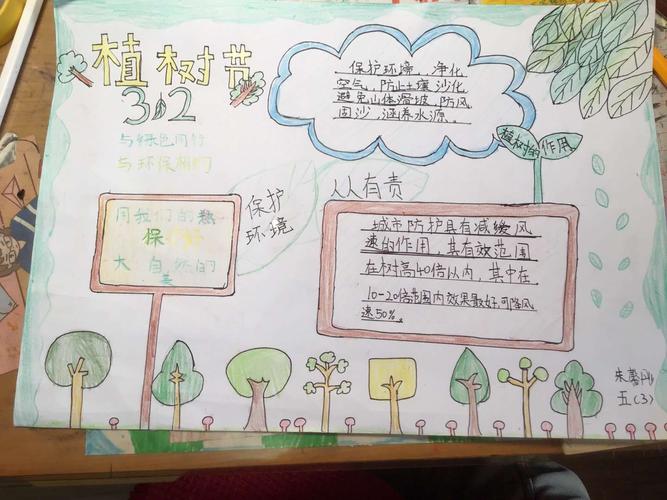 植树节
3 12
与绿色同行
与环保相约
保护环境，净化
空气，防止土壤沙化
避免山体滑坡，防风
固沙，涵养水源。
植树的作用
用我们的热
保护好
大自然的
美
保护
环境
人人有责
城市防护具有减缓风
速的作用，其有效范围
在树高40倍以内，其中在
10-20倍范围内效果最好，可降风
速50%。
五(3)